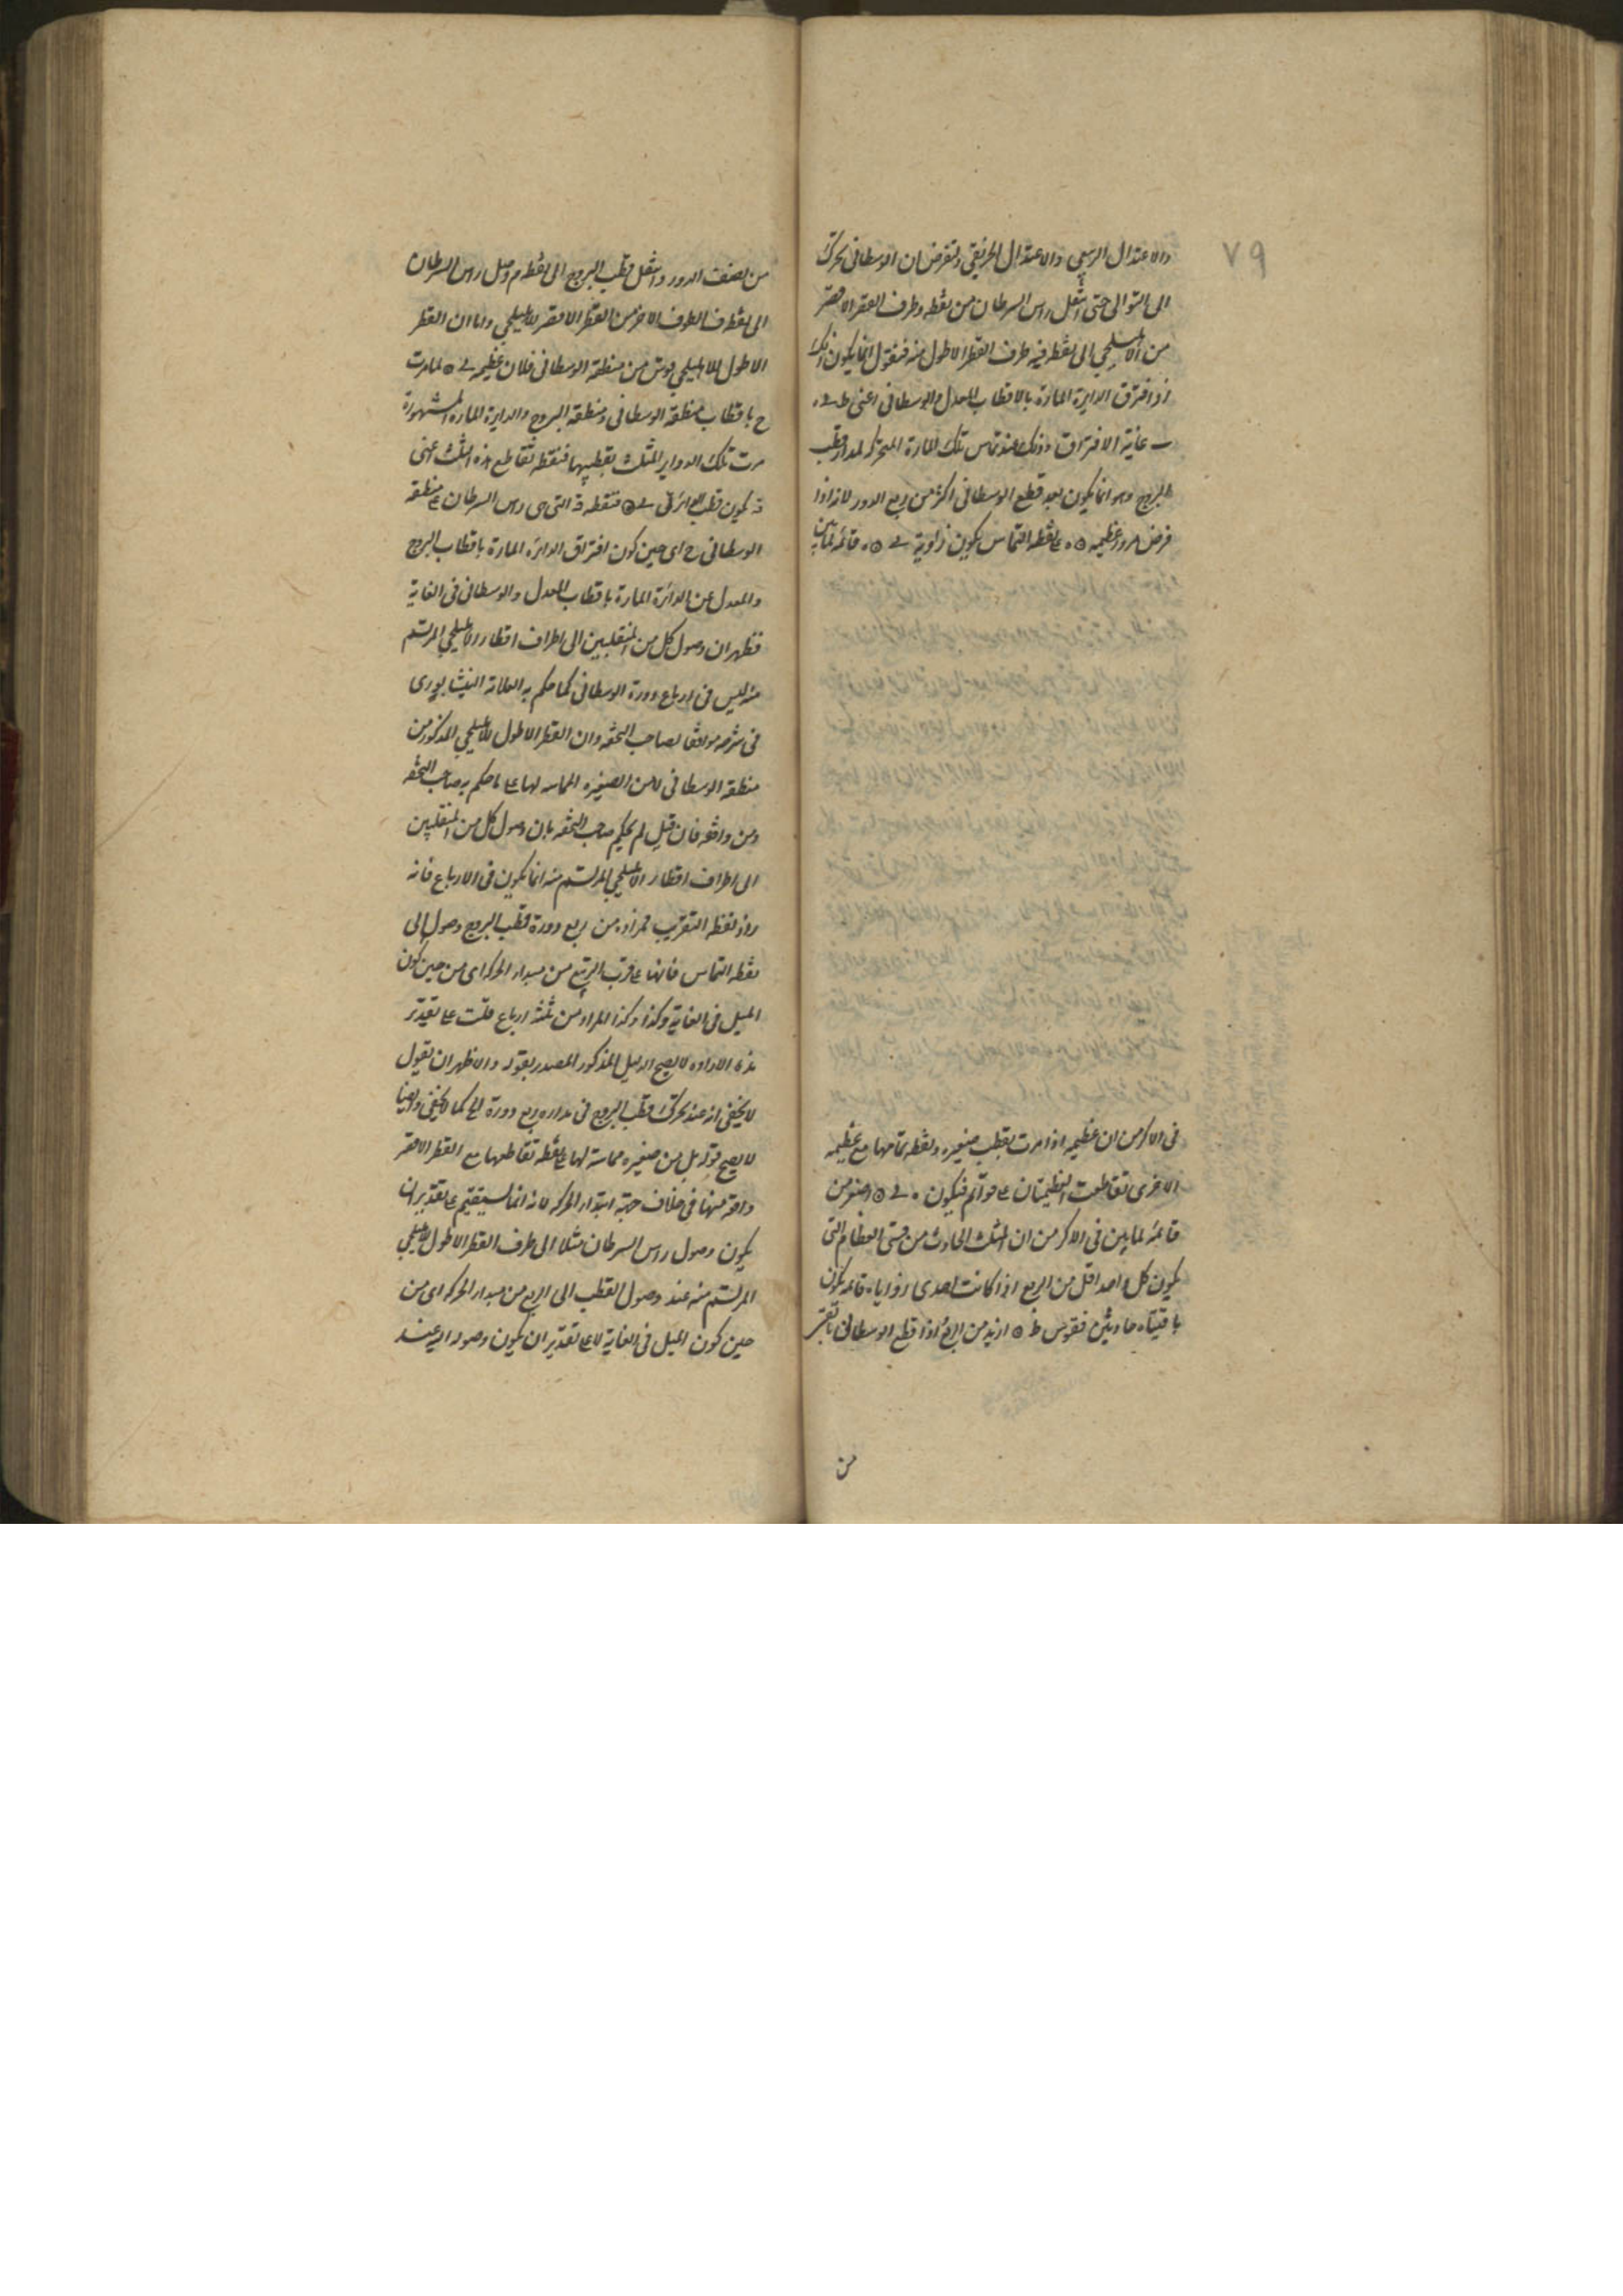 ٧٩
والاعتدال الربيعي والاعتدال الخريفي ولنفرض ان الوسطاني تحرك
الى التوالى حتى انتقل راس السرطان من نقطه وطرف القطر الاقصر
من الاهليلجي الى نقطه فيه طرف القطر الاطول منه فنقول انما يكون ذلك
اذا افترق الدايرة المارة بالاقطاب المعدل والوسطاني اعني ط
غاية الافتراق وذلك عند تماس تلك المارة المتحركه لمدار قطب
البروج وهو انما يكون بعد قطع الوسطاني اكثر من ربع الدور لانه اذا
فرض مرور عظيمه ه ه على نقطه التماس يكون زاوية ه ه قائمة لما تبين
في الاكر من ان عظيمه اذا مرت بقطب صغيره ونقطه تماسها مع عظيمه
الاخرى تقاطعت العظيمتان على قوائم فيكون ه اصغر من
قائمة لما تبين في الاكر من ان المثلث الحادث من قسي العظام التي
يكون كل واحد اقل من الربع اذا كانت احدى زواياه قائمه يكون
باقيتاه حادتين فقوس ط ه ازيد من الربع اذا قطع الوسطاني
من
من نصف الدور وانتقل قطب البروج الى نقطه م وصل راس السرطان
الى نقطه ف الطرف الاخر من القطر الاقصر للاهليلجي واما ان القطر
الاطول للاهليلجي قوس من منطقة الوسطاني فلان عظيمه ه لما مرت
ح باقطاب منطقة الوسطاني ومنطقة البروج والدايرة المارة المشهورة
مرت تلك الدواير الثلث بقطبيها فنقطه تقاطع هذه الثلث اعني
ف يكون قطب الدائرة ه فنقطه ف التي هي راس السرطان على منطقة
الوسطاني ح اي حين كون افتراق الدائرة المارة باقطاب البروج
والمعدل عن الدائرة المارة باقطاب المعدل والوسطاني في الغاية
فظهر ان وصول كل من المنقلبين الى اطراف اقطار الاهليلجي المرتسم
منه ليس في ارباع دورة الوسطاني كما حكم به العلامة النيشابوري
في شرحه موافقا لصاحب التحفه وان القطر الاطول للاهليلجي المذكور من
منطقة الوسطاني لا من الصغيره المماسه لها على ما حكم به صاحب التحفه
ومن وافقه فان قيل لم يحكم صاحب التحفه بان وصول كل من المنقلبين
الى اطراف اقطار الاهليلجي المرتسم منه انما يكون في الارباع فانه
زاد لفظه التقريب فمراده من ربع دورة قطب البروج وصول الى
نقطه التماس فانها على قرب الربع من مبداء الحركه اي من حين كون
الميل في الغاية وكذا وكذا المراد من ثلثة ارباع قلت على تقدير
هذه الاراده لا يصح الدليل المذكور المصدر بقوله والاظهر ان نقول
لا يخفى انه عند تحرك قطب البروج في مداره ربع دورة الخ كما لا يخفى وايضا
لا يصح قوله بل من صغيره مماسه لها على نقطه تقاطعها مع القطر الاقصر
واقعة منها في خلاف جهة ابتداء الحركه لانه انما يستقيم على تقدير ان
يكون وصول راس السرطان مثلا الى طرف القطر الاطول للاهليلجي
المرتسم منه عند وصول القطب الى الربع من مبداء الحركه اي من
حين كون الميل في الغاية لا على تقدير ان يكون وصوله اليه عند